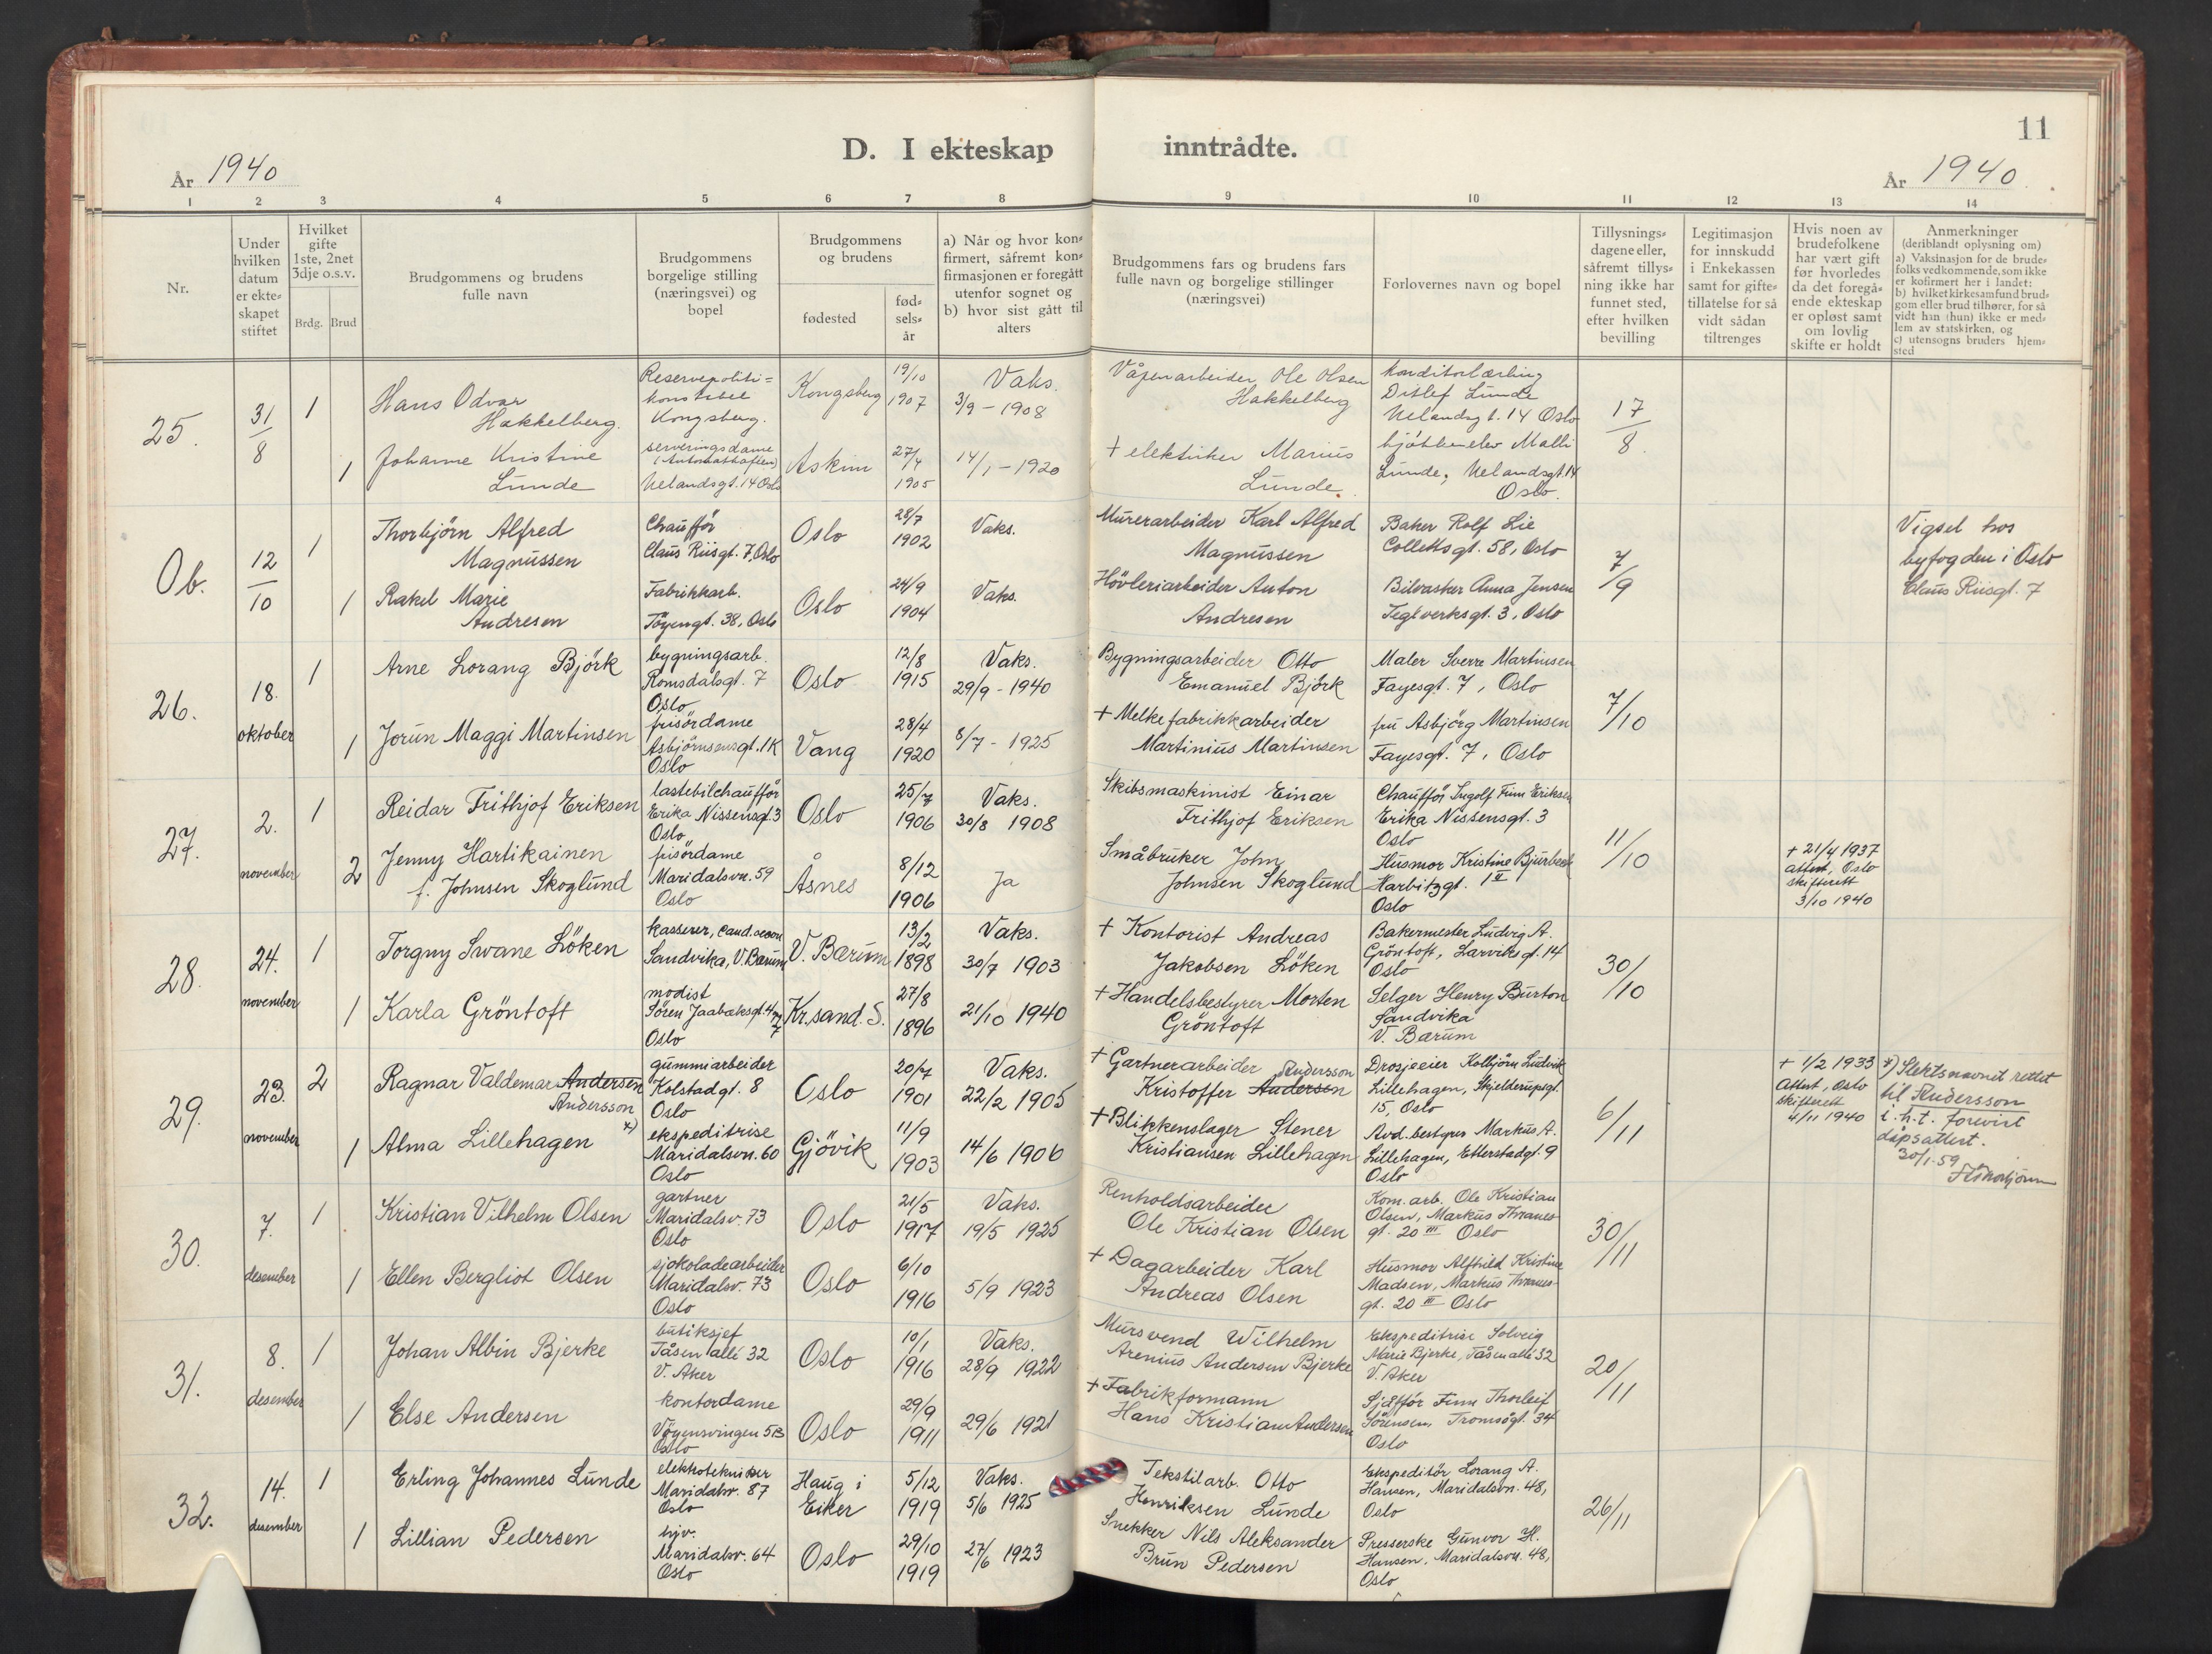 D. I ekteskap inntrådte.
11
År 1940
År 1940.
1 2 3 4 5 6 7 8 9 10 11 12 13 14
Nr.
Under
hvilken
datum
er ekte-
skapet
stiftet
Hvilket
gifte
1ste, 2net
3dje o.s.v.
Brdg. Brud
Brudgommens og brudens
fulle navn
Brudgommens
borgelige stilling
(næringsvei) og
bopel
Brudgommens
og brudens
fødested
fød-
sels-
år
a) Når og hvor kon-
firmert, såfremt kon-
firmasjonen er foregått
utenfor sognet og
b) hvor sist gått til
alters
Brudgommens fars og brudens fars
fulle navn og borgelige stillinger
(næringsvei)
Forlovernes navn og bopel
Tillysnings-
dagene eller,
såfremt tillys-
ning ikke har
funnet sted,
efter hvilken
bevilling
Legitimasjon
for innskudd
i Enkekassen
samt for gifte-
tillatelse for så
vidt sådan
tiltrenges
Hvis noen av
brudefolkene
har vært gift
før hvorledes
da det foregå-
ende ekteskap
er opløst samt
om lovlig
skifte er holdt
Anmerkninger
(deriblandt oplysning om)
a) Vaksinasjon for de brude-
folks vedkommende, som ikke
er kofirmert her i landet:
b) hvilket kirkesamfund brud-
gom eller brud tilhører, for så
vidt han (hun) ikke er med-
lem av statskirken, og
c) utensogns bruders hjem-
sted
25.
31/8
1
Hans Odvar
Hakkelberg.
Reservepoliti=
konstabel
Kongsberg.
Kongsberg
19/10
1907
Vaks.
3/9 - 1908
Våpenarbeider Ole Olsen
Hakkelberg
Konditorlærling
Ditlef Lunde
Uelandsgt. 14 Oslo
17/8
1
Johanne Kristine
Lunde
serveringsdame
Uelandsgt. 14 Oslo
Askim
27/4
1905
14/1 - 1920
+ elektriker Marius
Lunde.
Malli
Lunde, Uelandsgt. 14
Oslo.
Ob.
12/10
1
Thorbjörn Alfred
Magnussen
Chauffør
Claus Riisgt. 7, Oslo
Oslo
28/7
1902
Vaks.
Murerarbeider Karl Alfred
Magnussen
Baker Rolf Lie
Collettsgt. 58, Oslo
7/9
Vigsel hos
byfogden i Oslo
Claus Riisgt. 7
1
Rakel Marie
Andresen
Fabrikkarb.
Töyengt. 38, Oslo
Oslo
24/9
1904
Vaks.
Hövleriarbeider Anton
Andresen
Bilvasker Anna Jensen
Teglverksgt. 3, Oslo
26.
18.
oktober
1
Arne Lorang Björk
bygningsarb.
Romsdalsgt. 7
Oslo
Oslo
12/8
1915
Vaks.
29/9 - 1940
Bygningsarbeider Otto
Emanuel Björk
Maler Sverre Martinsen
Fayesgt. 7, Oslo
7/10
1
Jorun Maggi Martinsen
frisördame
Asbjörnsensgt. 1K
Oslo
Vang
28/4
1920
8/7 - 1925
+ Melkefabrikkarbeider
Martinius Martinsen
fru Asbjörg Martinsen
Fayesgt. 7, Oslo
27.
2.
november
1
Reidar Frithjof Eriksen
lastebilchaufför
Erika Nissensgt. 3
Oslo
Oslo
25/7
1906
Vaks.
30/8 1908
Skibsmaskinist Einar
Frithjof Eriksen
Chauffør Ingolf Finn Eriksen
Erika Nissensgt. 3
Oslo
11/10
2
Jenny Hartikainen
f. Johnsen Skoglund
frisördame
Maridalsvn. 59
Oslo
Åsnes
8/12
1906
Ja
Småbruker John
Johnsen Skoglund
Husmor Kristine Bjurbeck
Harbitzgt. 1 II
Oslo
+ 21/4 1937
attest, Oslo
skifterett
3/10 1940
28.
24.
november
1
Torgny Swane Löken
kasserer, cand. oecon
Sandvika, V. Bærum
V. Bærum
13/2
1898
Vaks.
30/7 1903
+ Kontorist Andreas
Jakobsen Löken
Bakermester Ludvig A.
Gröntoft, Larviksgt. 14
Oslo
30/10
1
Karla Gröntoft
modist
Sören Jaabæksgt. 4
Oslo
Kr.sand. S.
27/8
1896
21/10 1940
+ Handelsbestyrer Morten
Gröntoft
Selger Henry Burton
Sandvika
V. Bærum
29.
23.
november
2
Ragnar Valdemar Andersen
Andersson
x)
gummiarbeider
Kolstadgt. 8
Oslo
Oslo
20/7
1901
Vaks.
22/2 1905
+ Gartnerarbeider Andersson
Kristoffer Andersen
Drosjeeier Kolbjörn Ludvik
Lillehagen, Skjelderupsgt.
15, Oslo
6/11
+ 1/2 1933
Attest, Oslo
skifterett
4/11 1940
x) Slektsnavnet rettet
til Andersson
i.h.t. forevist
dåpsattest.
30/1-59
1
Alma Lillehagen
ekspeditrise
Maridalsvn. 60
Oslo
Gjövik
11/9
1903
14/6 1906
+ Blikkenslager Stener
Kristiansen Lillehagen
Avd. bestyrer Markus A.
Lillehagen, Etterstadgt. 9
Oslo
30.
7.
desember
1
Kristian Vilhelm Olsen
gartner
Maridalsv. 73
Oslo
Oslo
21/5
1917
Vaks.
19/5 1925
Renholdsarbeider
Ole Kristian Olsen
Kom. arb. Ole Kristian
Olsen, Markus Thranes
gt. 20 III Oslo
30/11
1
Ellen Bergliot Olsen
sjokoladearbeider
Maridalsv. 73
Oslo
Oslo
6/10
1916
5/9 1923
+ Dagarbeider Karl
Andreas Olsen
Husmor Alfhild Kristine
Madsen, Markus Thranes-
gt. 20 III Oslo
31.
8.
desember
1
Johan Albin Bjerke
butiksjef
Tåsen allé 32
V. Aker
Oslo
10/1
1916
Vaks.
28/9 1922
Mursvend Wilhelm
Arenius Andersen Bjerke
Ekspeditrise Solveig
Marie Bjerke, Tåsen allé 32
V. Aker
20/11
1
Else Andersen
kontordame
Vöyensvingen 5B
Oslo
Oslo
29/9
1911
29/6 1921
+ Fabrikformann
Hans Kristian Andersen
Sjåfför Finn Thorleif
Sörensen, Tromsögt. 34
Oslo
32.
14.
desember
1
Erling Johannes Lunde
elektrotekniker
Maridalsv. 87
Oslo
Haug i
Eiker
5/12
1919
Vaks.
5/6 1925
Tekstilarb. Otto
Henriksen Lunde
Ekspeditör Lorang A.
Hansen, Maridalsvn. 48,
Oslo
26/11
1
Lillian Pedersen
hjv.
Maridalsv. 64
Oslo
Oslo
29/10
1919
27/6 1923
Snekker Nils Aleksander
Brun Pedersen
Presserske Gunvor H.
Hansen, Maridalsvn. 48,
Oslo